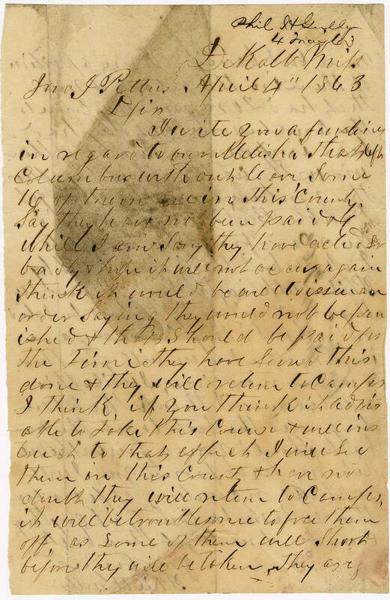 Phil H Gully
De Kalb Miss
Jno J Pettus April 4th 1863
Sir
I write you a few lines
in regard to our Melisha that left
Columbus without leave some
16 of them are in this County
Say they have not been paid &
while I am Say they have acted
badly & hope it will not occur again
I think it would be well to issue an
order Saying they would not be pun
ished & that they Should be paid for
the time they have Served this
done & they will return to Camps
I think if you think it advis
able to take this Course & write
me to that effect I will See
them in this County & have no
doubt they will return to Camps,
it will be troublesome to force them
off as Some of them will Shoot
before they will be taken, they are